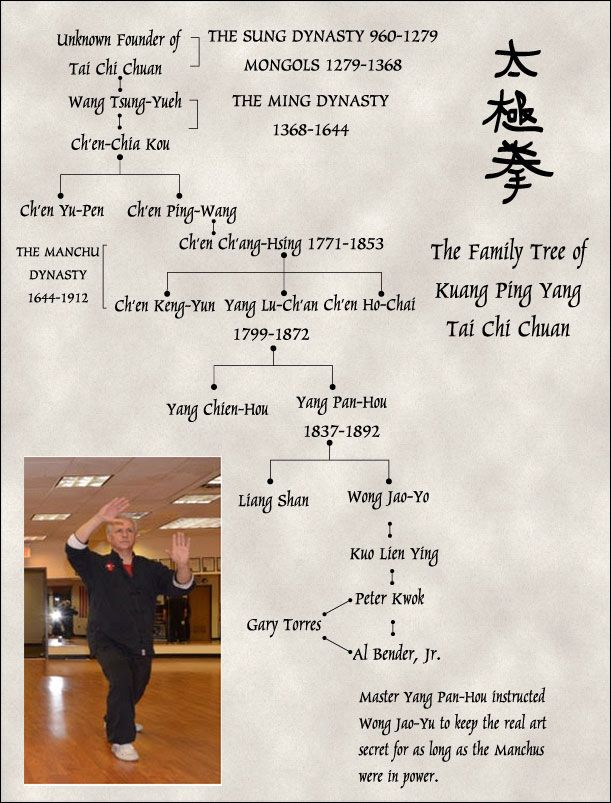 Unknown Founder of
Tai Chi Chuan
THE SUNG DYNASTY 960-1279
MONGOLS 1279-1368
Wang Tsung-Yueh
THE MING DYNASTY
1368-1644
Ch'en-Chia Kou
太
極
拳
Ch'en Yu-Pen
Ch'en Ping-Wang
Ch'en Ch'ang-Hsing 1771-1853
THE MANCHU
DYNASTY
1644-1912
The Family Tree of
Kuang Ping Yang
Tai Chi Chuan
Ch'en Keng-Yun
Yang Lu-Ch'an
Ch'en Ho-Chai
1799-1872
Yang Chien-Hou
Yang Pan-Hou
1837-1892
Liang Shan
Wong Jao-Yo
Kuo Lien Ying
Peter Kwok
Gary Torres
Al Bender, Jr.
Master Yang Pan-Hou instructed
Wong Jao-Yu to keep the real art
secret for as long as the Manchus
were in power.